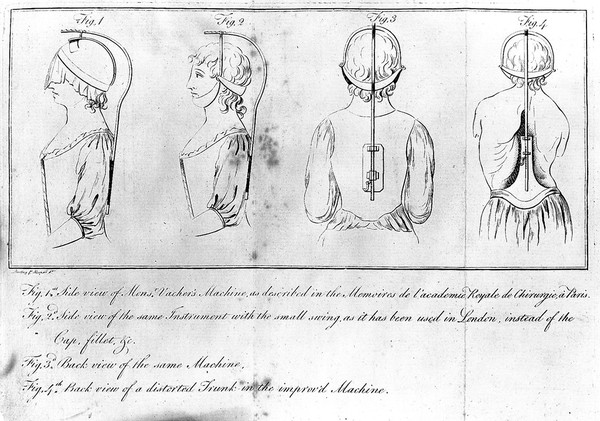 Fig. 1
Fig. 2
Fig. 3
Fig. 4
Fig. 1.st Side view of Mons.r Vacher's Machine, as described in the Memoires de l'academie Royale de Chirurgie, à Paris.
Fig. 2.d Side view of the same Instrument with the small swing, as it has been used in London, instead of the
Cap, fillet, &c.
Fig. 3.d Back view of the same Machine.
Fig. 4.th Back view of a distorted Trunk in the improv'd Machine.